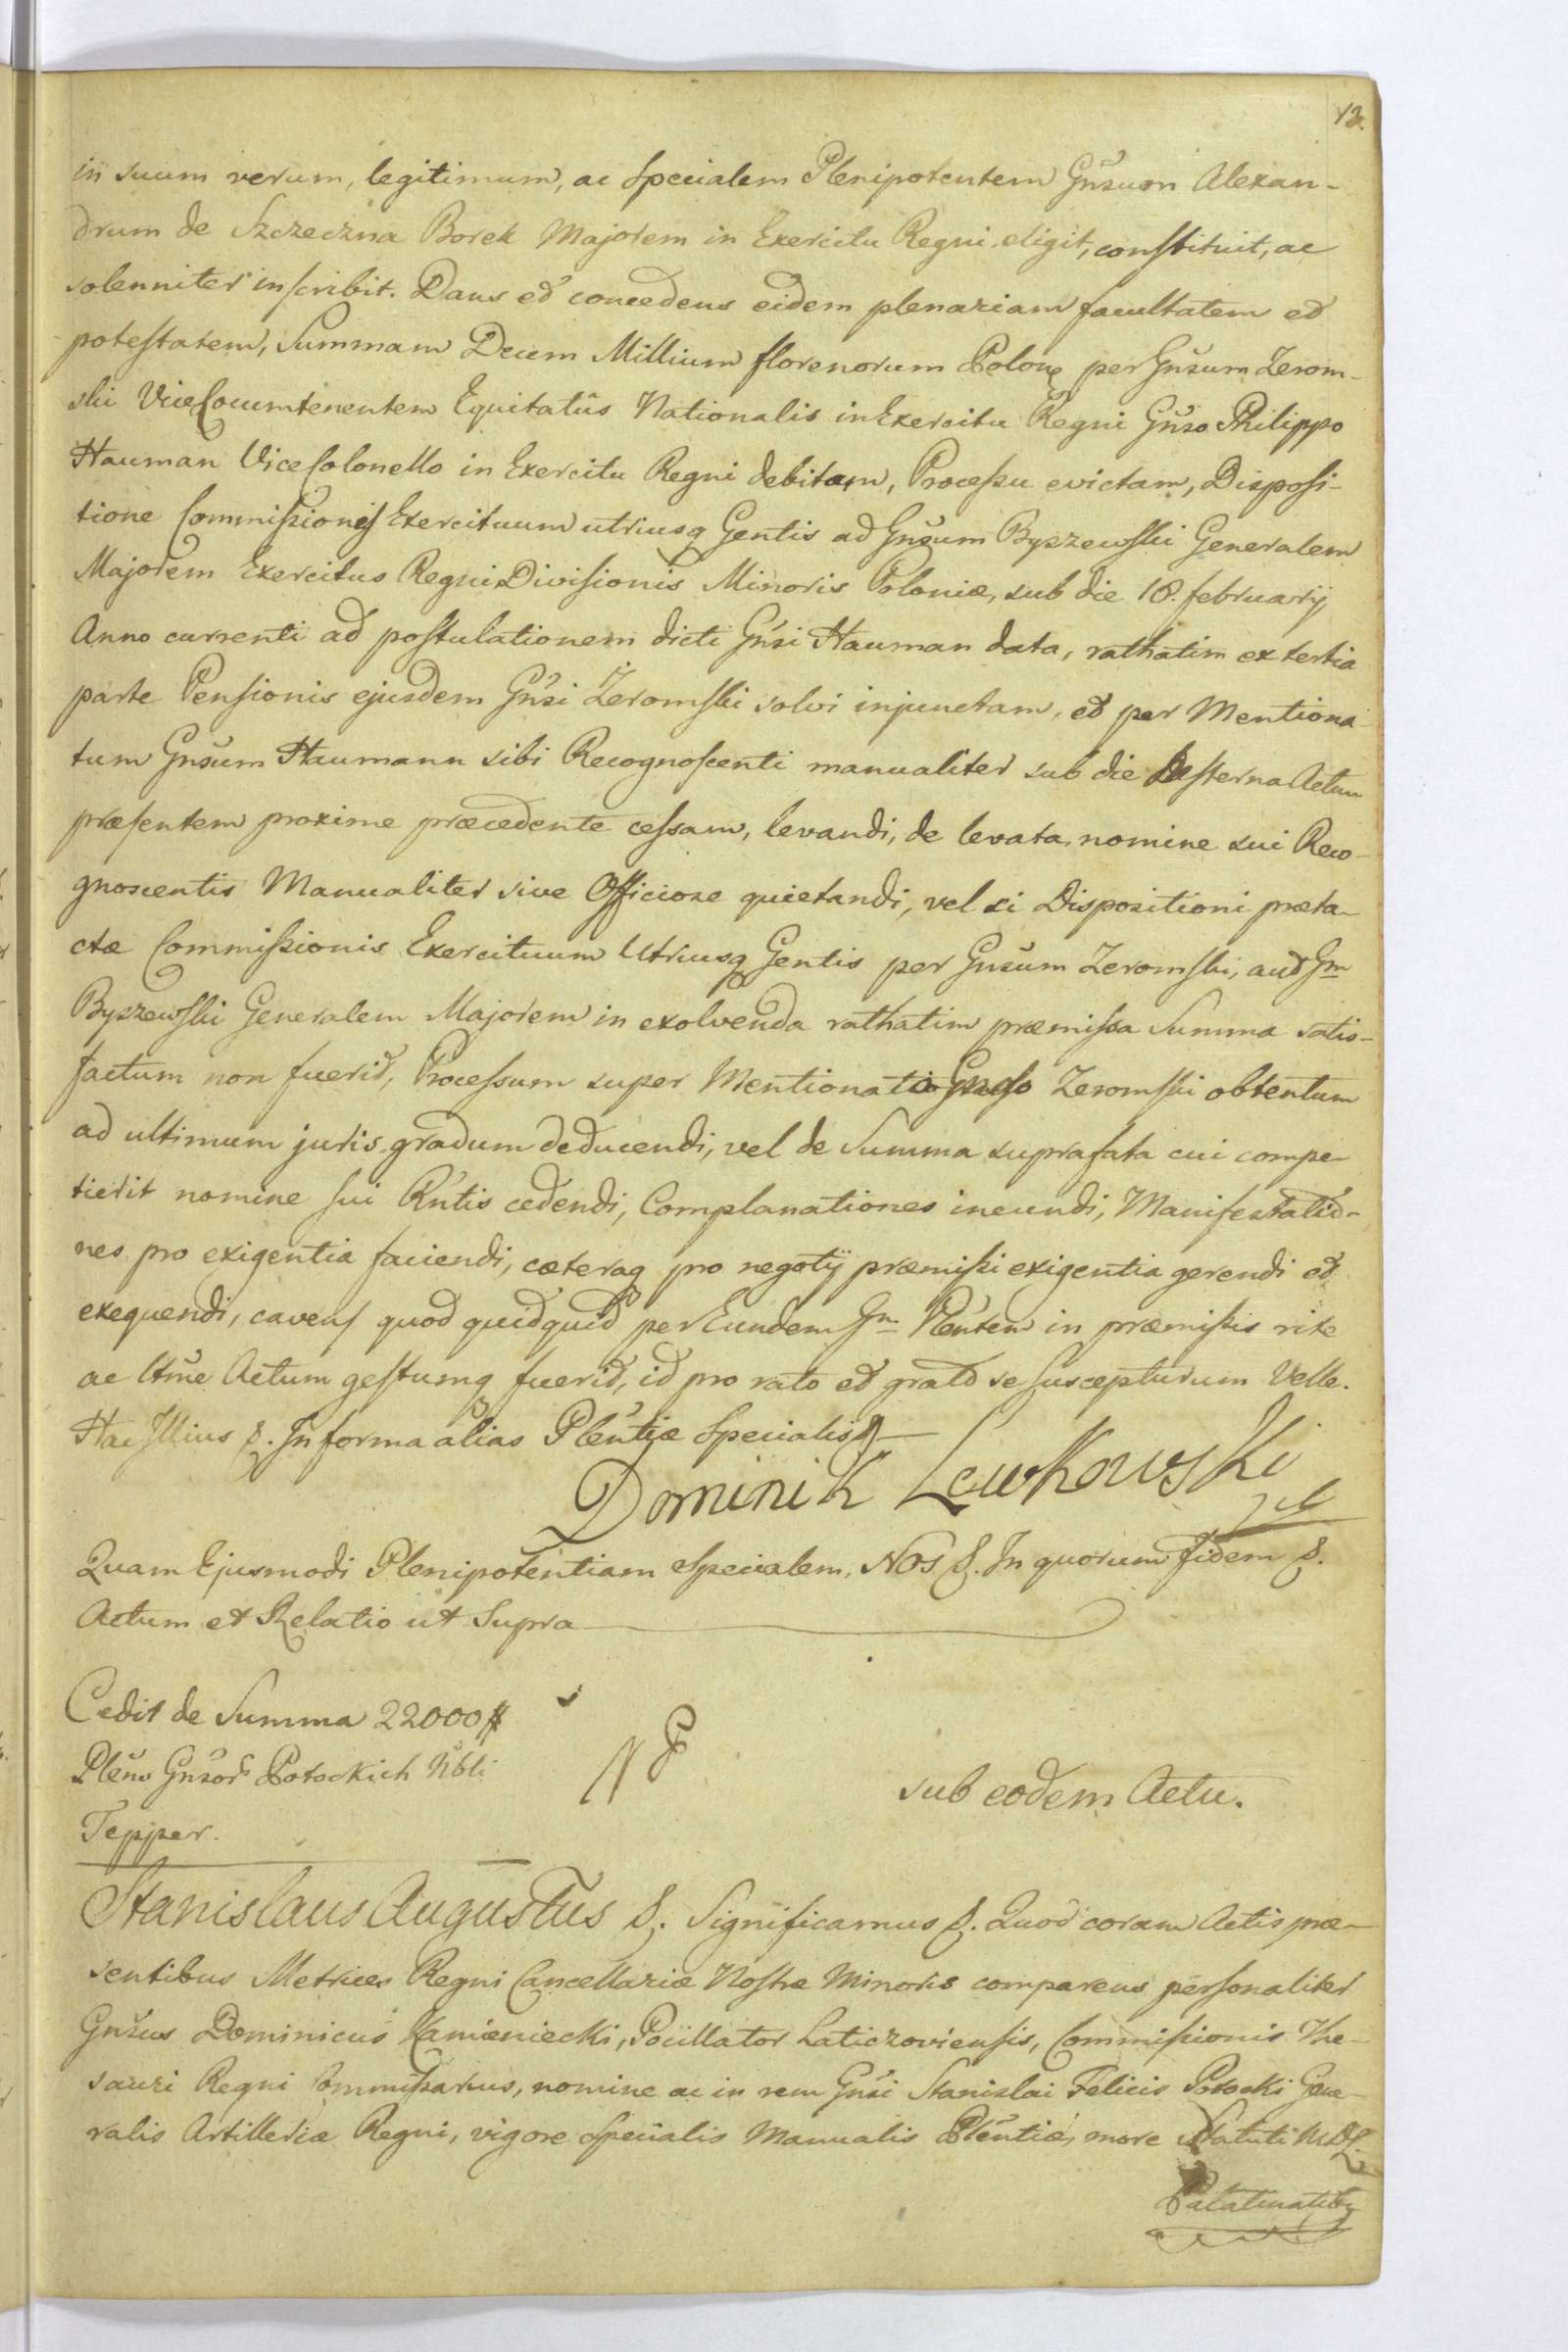 13.
in suum verum, legitimum, ac Specialem Plenipotentem Gnsum Alexan-
drum de Szczeczna Borek Majorem in Exercitu Regni eligit, constituit, ac
solenniter inscribit. Dans et concedens eidem plenariam facultatem et
potestatem, Summam Decem Millium florenorum Polon per Gnsum Zerom-
ski ViceLocumtenentem Equitatûs Nationalis in Exercitu Regni Gnso Philippo
Hauman ViceColonello in Exercitu Regni debitam, Processu evictam, Disposi-
tione Commissionis Exercituum utriusq Gentis ad Gnsum Byszewski Generalem
Majorem Exercitus Regni Divisionis Minoris Poloniæ, sub die 18. februarij
Anno currenti ad postulationem dicti Gnsi Hauman data, rathatim ex tertia
parte Pensionis ejusdem Gnsi Żeromski solvi injunctam, et per Mentiona-
tum Gnsum Haumann sibi Recognoscenti manualiter sub die hesterna Actum
præsentem proxime præcedente cessam, levandi, de levata nomine sui Reco-
gnoscentis Manualiter sive Officiose quietandi, vel si Dispositioni præta-
ctæ Commissionis Exercituum Utriusq Gentis per Gnsum Zeromski, aut Gm
Byszewski Generalem Majorem in exolvenda rathatim præmissa Summa satis-
factum non fuerit, Processum super Mentionato Gnso Zeromski obtentum
ad ultimum juris gradum deducendi, vel de Summa suprafata cui compe-
tierit nomine sui Rntis cedendi, Complanationes ineundi, Manifestatio-
nes pro exigentia faciendi, cæteraq pro negotij præmissi exigentia gerendi et
exequendi, cavens quod quidquid per Eundem Gm Plentem in præmissis rite
ac ltme Actum gestumq fuerit, id pro rato et grato se suscepturum Velle.
Hac Illius &. In forma alias Plentiæ Specialis &
Dominik Lewkowski
Quam Ejusmodi Plenipotentiam Specialem, Nos &. In quorum fidem &.
Actum et Relatio ut Supra
Cedit de Summa 22000 ff
Pleno Gnsor Potockich Nbli
Tepper.
sub eodem Actu.
Stanislaus Augustus &. Significamus &. Quod coram Actis præ-
sentibus Metrices Regni Cancellariæ Nostræ Minoris comparens personaliter
Gnsus Dominicus Kamieniecki, Pocillator Laticzoviensis, Commissionis The-
sauri Regni Commissarius, nomine ac in rem Gnsi Stanislai Felicis Potocki Gene-
ralis Artilleriæ Regni, vigore Specialis Manualis Plentiæ, more Statuti MDL
Palatinatibq